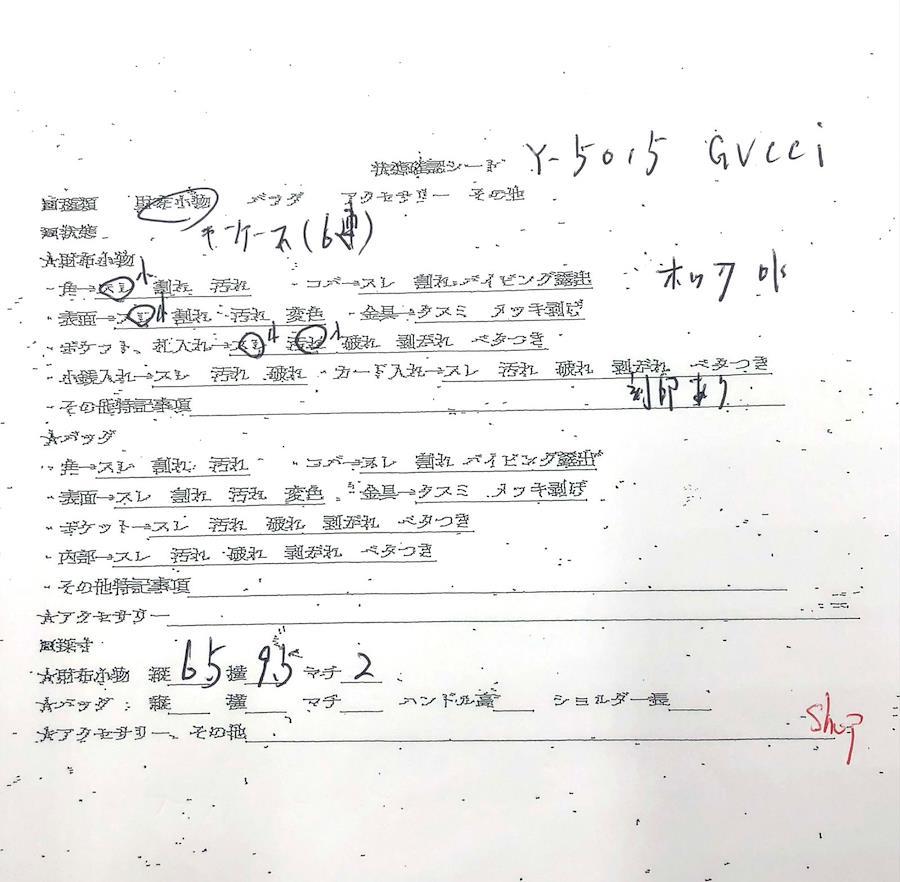 状態確認シート Y-5015 GUCCI
■種類 財布小物 バッグ アクセサリー その他
■状態 キーケース(6連)
★財布小物
・角→スレ小 割れ 汚れ ・コバ→スレ 割れ パイピング露出 ホック
・表面→スレ小 割れ 汚れ 変色 ・金具→クスミ メッキ剥げ
・ポケット、札入れ→スレ小 汚れ小 破れ 剥がれ ベタつき
・小銭入れ→スレ 汚れ 破れ ・カード入れ→スレ 汚れ 破れ 剥がれ ベタつき
・その他特記事項 刻印あり
★バッグ
・角→スレ 割れ 汚れ ・コバ→スレ 割れ パイピング露出
・表面→スレ 割れ 汚れ 変色 ・金具→クスミ メッキ剥げ
・ポケット→スレ 汚れ 破れ 剥がれ ベタつき
・内部→スレ 汚れ 破れ 剥がれ ベタつき
・その他特記事項
★アクセサリー
■採寸
★財布小物 縦 6.5 横 9.5 マチ 2
★バッグ:縦 横 マチ ハンドル高 ショルダー長
★アクセサリー、その他
Shop